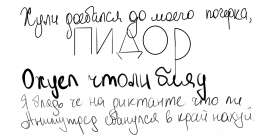 Хули доебался до моего почерка,
ПИДОР
Охуел чтоли бляд
Я блядь че на диктанте что ли
ебанулся в край нахуй